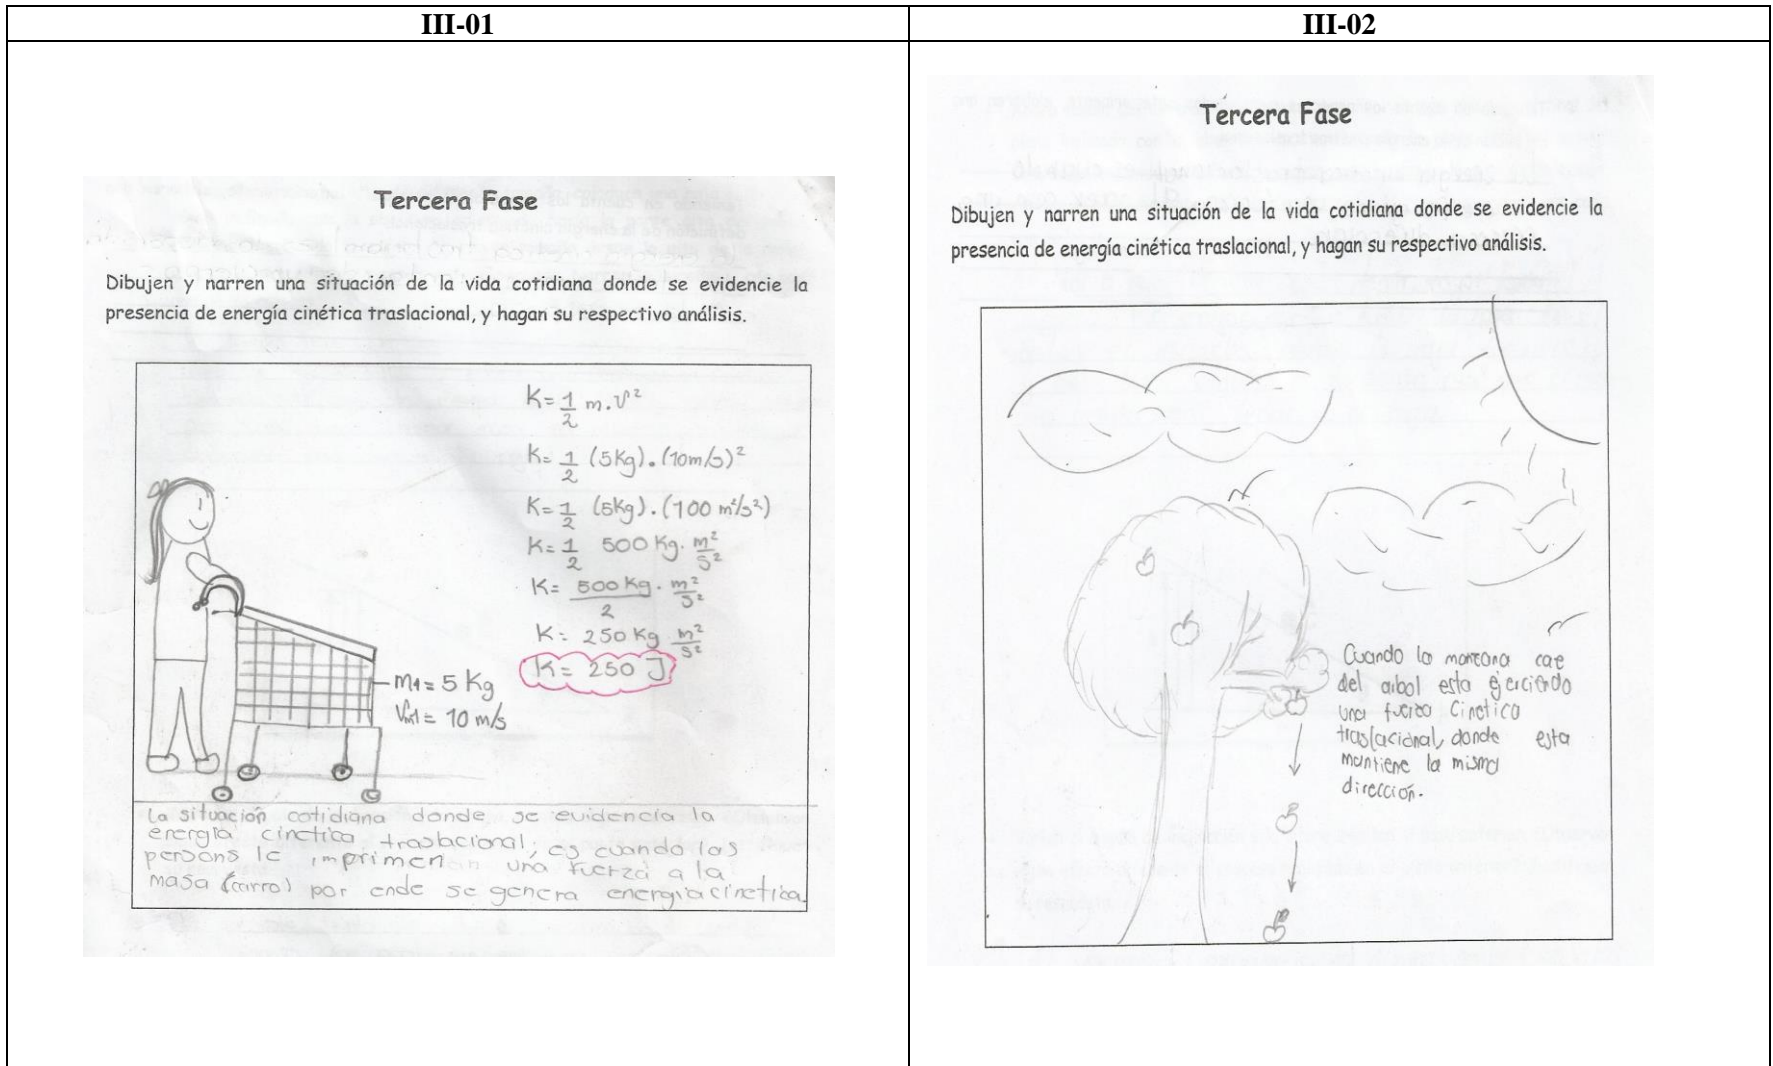 III-01
Tercera Fase
Dibujen y narren una situación de la vida cotidiana donde se evidencie la
presencia de energía cinética traslacional, y hagan su respectivo análisis.
K = 1/2 m . V²
K = 1/2 (5Kg) . (10m/s)²
K = 1/2 (5Kg) . (100 m²/s²)
K = 1/2 500 Kg . m²/s²
K = 500 Kg/2 . m²/s²
K = 250 Kg m²/s²
K = 250 J
m1 = 5 Kg
Vm1 = 10 m/s
La situación cotidiana donde se evidencía la
energía cinética traslacional, es cuando las
persons le imprimen una fuerza a la
masa (carro) por ende se genera energía cinetica.
III-02
Tercera Fase
Dibujen y narren una situación de la vida cotidiana donde se evidencie la
presencia de energía cinética traslacional, y hagan su respectivo análisis.
Cuando la manzana cae
del arbol esta ejerciendo
una fuerza Cinetica
traslacional, donde esta
mantiene la misma
dirección.